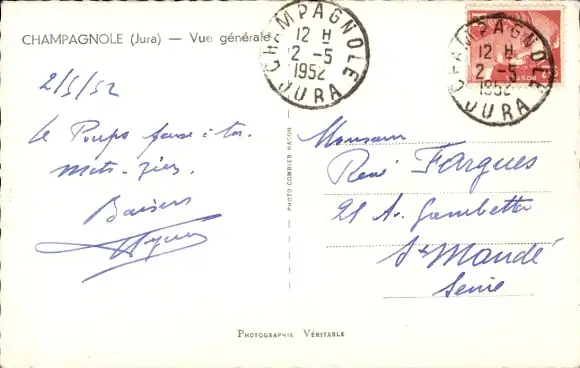 CHAMPAGNOLE (Jura) — Vue générale
CHAMPAGNOLE
12 H
2 -5
1952
JURA
CHAMPAGNOLE
12 H
2 -5
1952
JURA
POSTES
2/5/52
Le Temps passe
Baisers
PHOTO COMBIER MACON
Monsieur
René Fargues
21 Av. Gambetta
St Mandé
Seine
PHOTOGRAPHIE VÉRITABLE